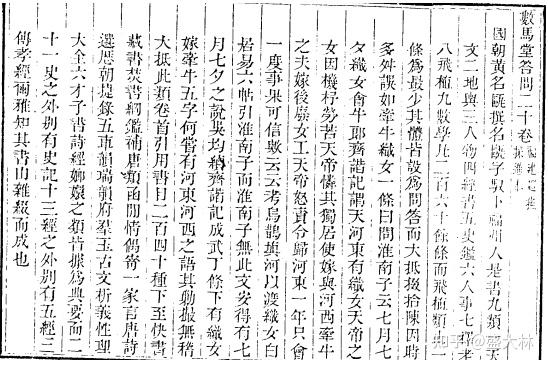 數馬堂答問二十卷
國朝黃名甌撰名甌字馭卜福州人是書九類一天
文二地與三人物四經書五史鑑六人事七釋老
八飛植九數學凡二百六十餘條而飛植類止一
條為最少其體皆設為問答而大抵掇拾陳因時
多舛誤如牽牛織女一條曰問淮南子云七月七
夕織女會牛耶齊諧記謂天河東有織女天帝之
女因機杼勞苦天帝憐其獨居使嫁與河西牽牛
之夫嫁後廢女工天帝怒責令歸河東一年只會
一度事果可信歟云云考烏鵲填河以渡織女白
居易六帖引淮南子而淮南子無此文安得有七
月七夕之說吳均續齊諧記成武丁條下有織女
嫁牽牛五字何嘗有河東河西之語其勦撮無稽
大抵此類卷首引用書目二百四十種下至快書
藏書焚書綱鑑補唐類函閒情偶寄一家言唐詩
選歷朝捷錄五車韻瑞韻府羣玉古文析義性理
大全六才子書詩經嫏嬛之類皆據為典要而二
十一史之外別有史記十三經之外別有五經三
傳孝經爾雅知其書由雜綴而成也
知乎 @盛大林